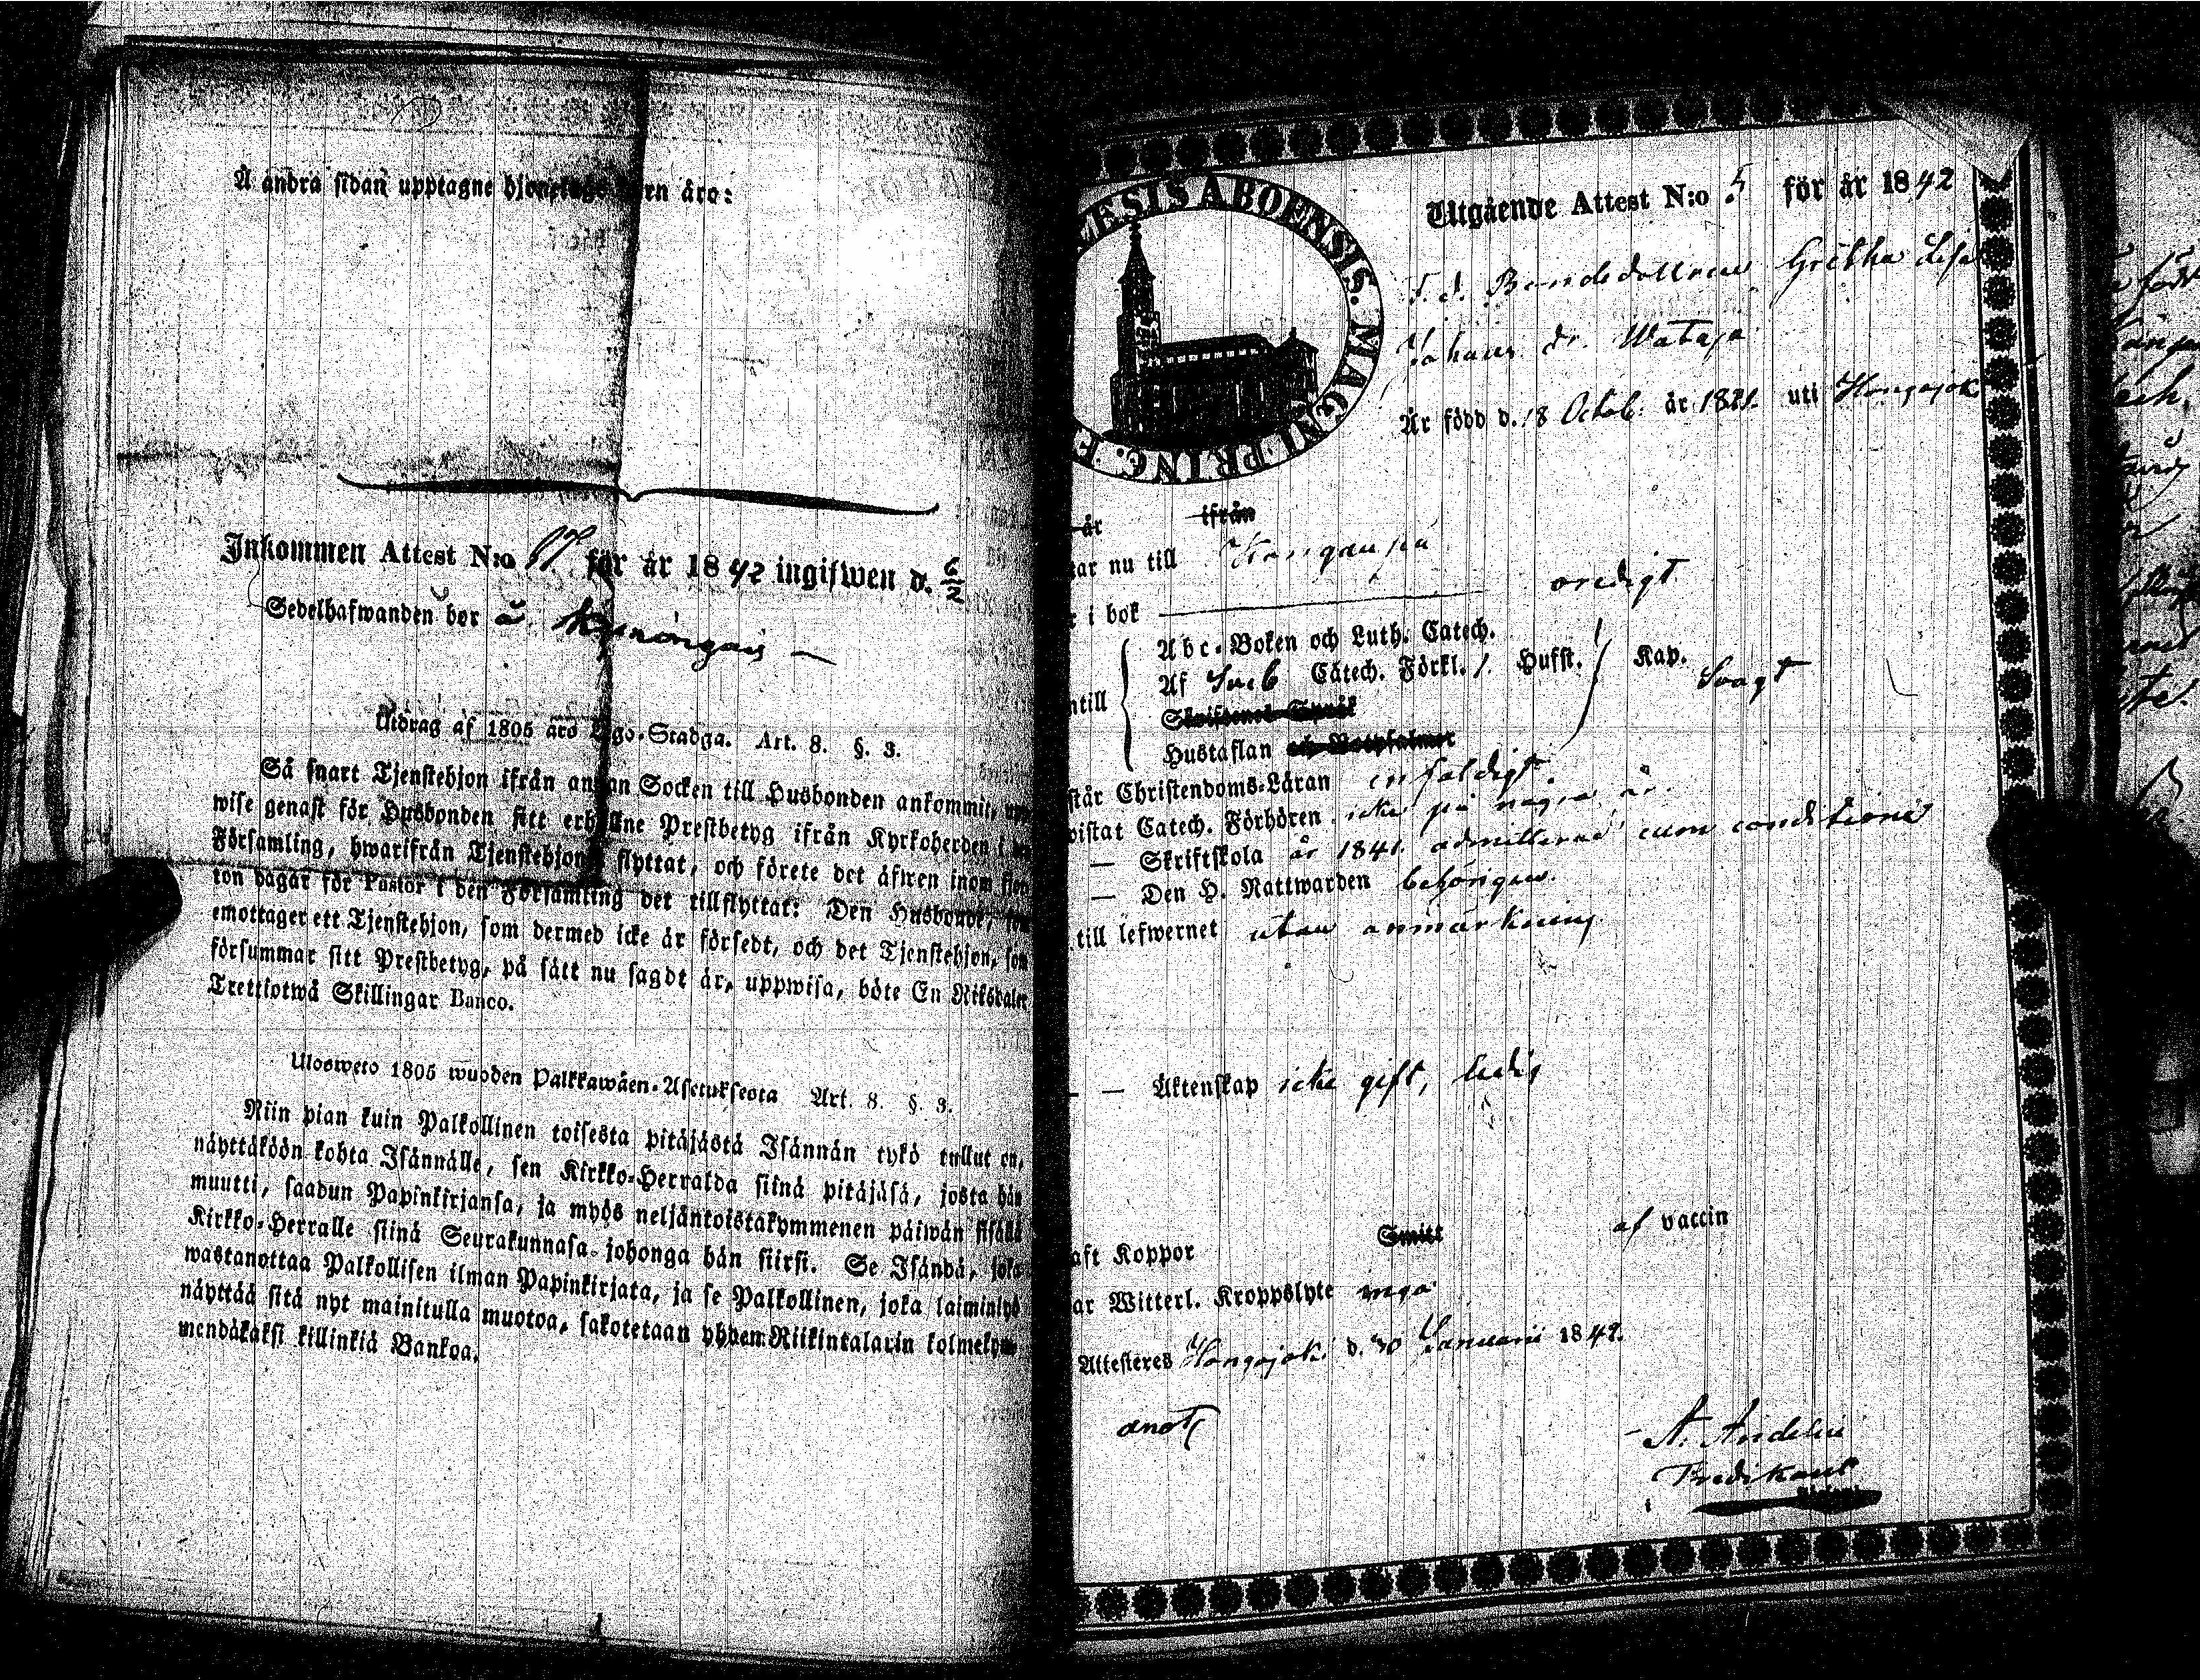 Å andra sidan upptagne hjonelags barn äro:
Inkommen Attest N:o 17 för år 1842 ingifwen d. 6/2
Sedelhafwanden bor å
Utdrag af 1805 års Lego-Stadga. Art. 8. §. 3.
Så snart Tjenstehjon ifrån annan Socken till Husbonden ankommit, upp
wise genast för Husbonden sitt erhållne Prestbetyg ifrån Kyrkoherden i den
Församling, hwarifrån Tjenstehjonet flyttat, och förete det äfwen inom fjor
ton dagar för Pastor i den Församling det tillflyttat: Den Husbonde, som
emottager ett Tjenstehjon, som dermed icke är försedt, och det Tjenstehjon, som
försummar sitt Prestbetyg, på sätt nu sagdt är, uppwisa, böte En Riksdaler
Trettiotwå Skillingar Banco.
Ulosweto 1805 wuoden Palkkawäen-Asetuksesta Art. 8. §. 3.
Niin pian kuin Palkollinen toisesta pitäjästä Isännän tykö tullut on,
näyttäköön kohta Isännälle, sen Kirkko-Herralda siinä pitäjäsä, josta hän
muutti, saadun Papinkirjansa, ja myös neljäntoistakymmenen päiwän sisällä
Kirkko-Herralle siinä Seurakunnasa johonga hän siirsi. Se Isändä, joka
wastanottaa Palkollisen ilman Papinkirjata, ja se Palkollinen, joka laiminlyö
näyttää sitä nyt mainitulla muotoa, sakotetaan yhden Riikintalarin kolmekym
mendäkaksi killinkiä Bankoa.
ESIS ABOENSIS. MAGNI PRINC. F
Utgående Attest N:o 5 för år 1842
F. d. Bondedottren Gretha Lisa
Johans dr. Wataja
Är född d. 18 Octob. år 1821. uti Hongojok
år ifrån
ar nu till Kanganpä
i bok oredigt
ntill
Abc-Boken och Luth. Catech.
Af Sveb Catech. Förkl. 1. Hufst. Kap. Svagt
Skriftenes Språk
Hustaflan och Botpsalmer
står Christendoms-Läran enfaldigt.
vistat Catech. Förhören icke på några år.
— Skriftskola år 1841. admitterad cum conditione
— Den H. Nattwarden behörigen.
till lefwernet utan anmärkning
— Äktenskap icke gift, ledig
aft Koppor Smitt af vaccin
ar Witterl. Kroppslyte inga
Attesteres Hongojoki d. 30 Januarii 1842.
anot
A. Andelin
Predikant